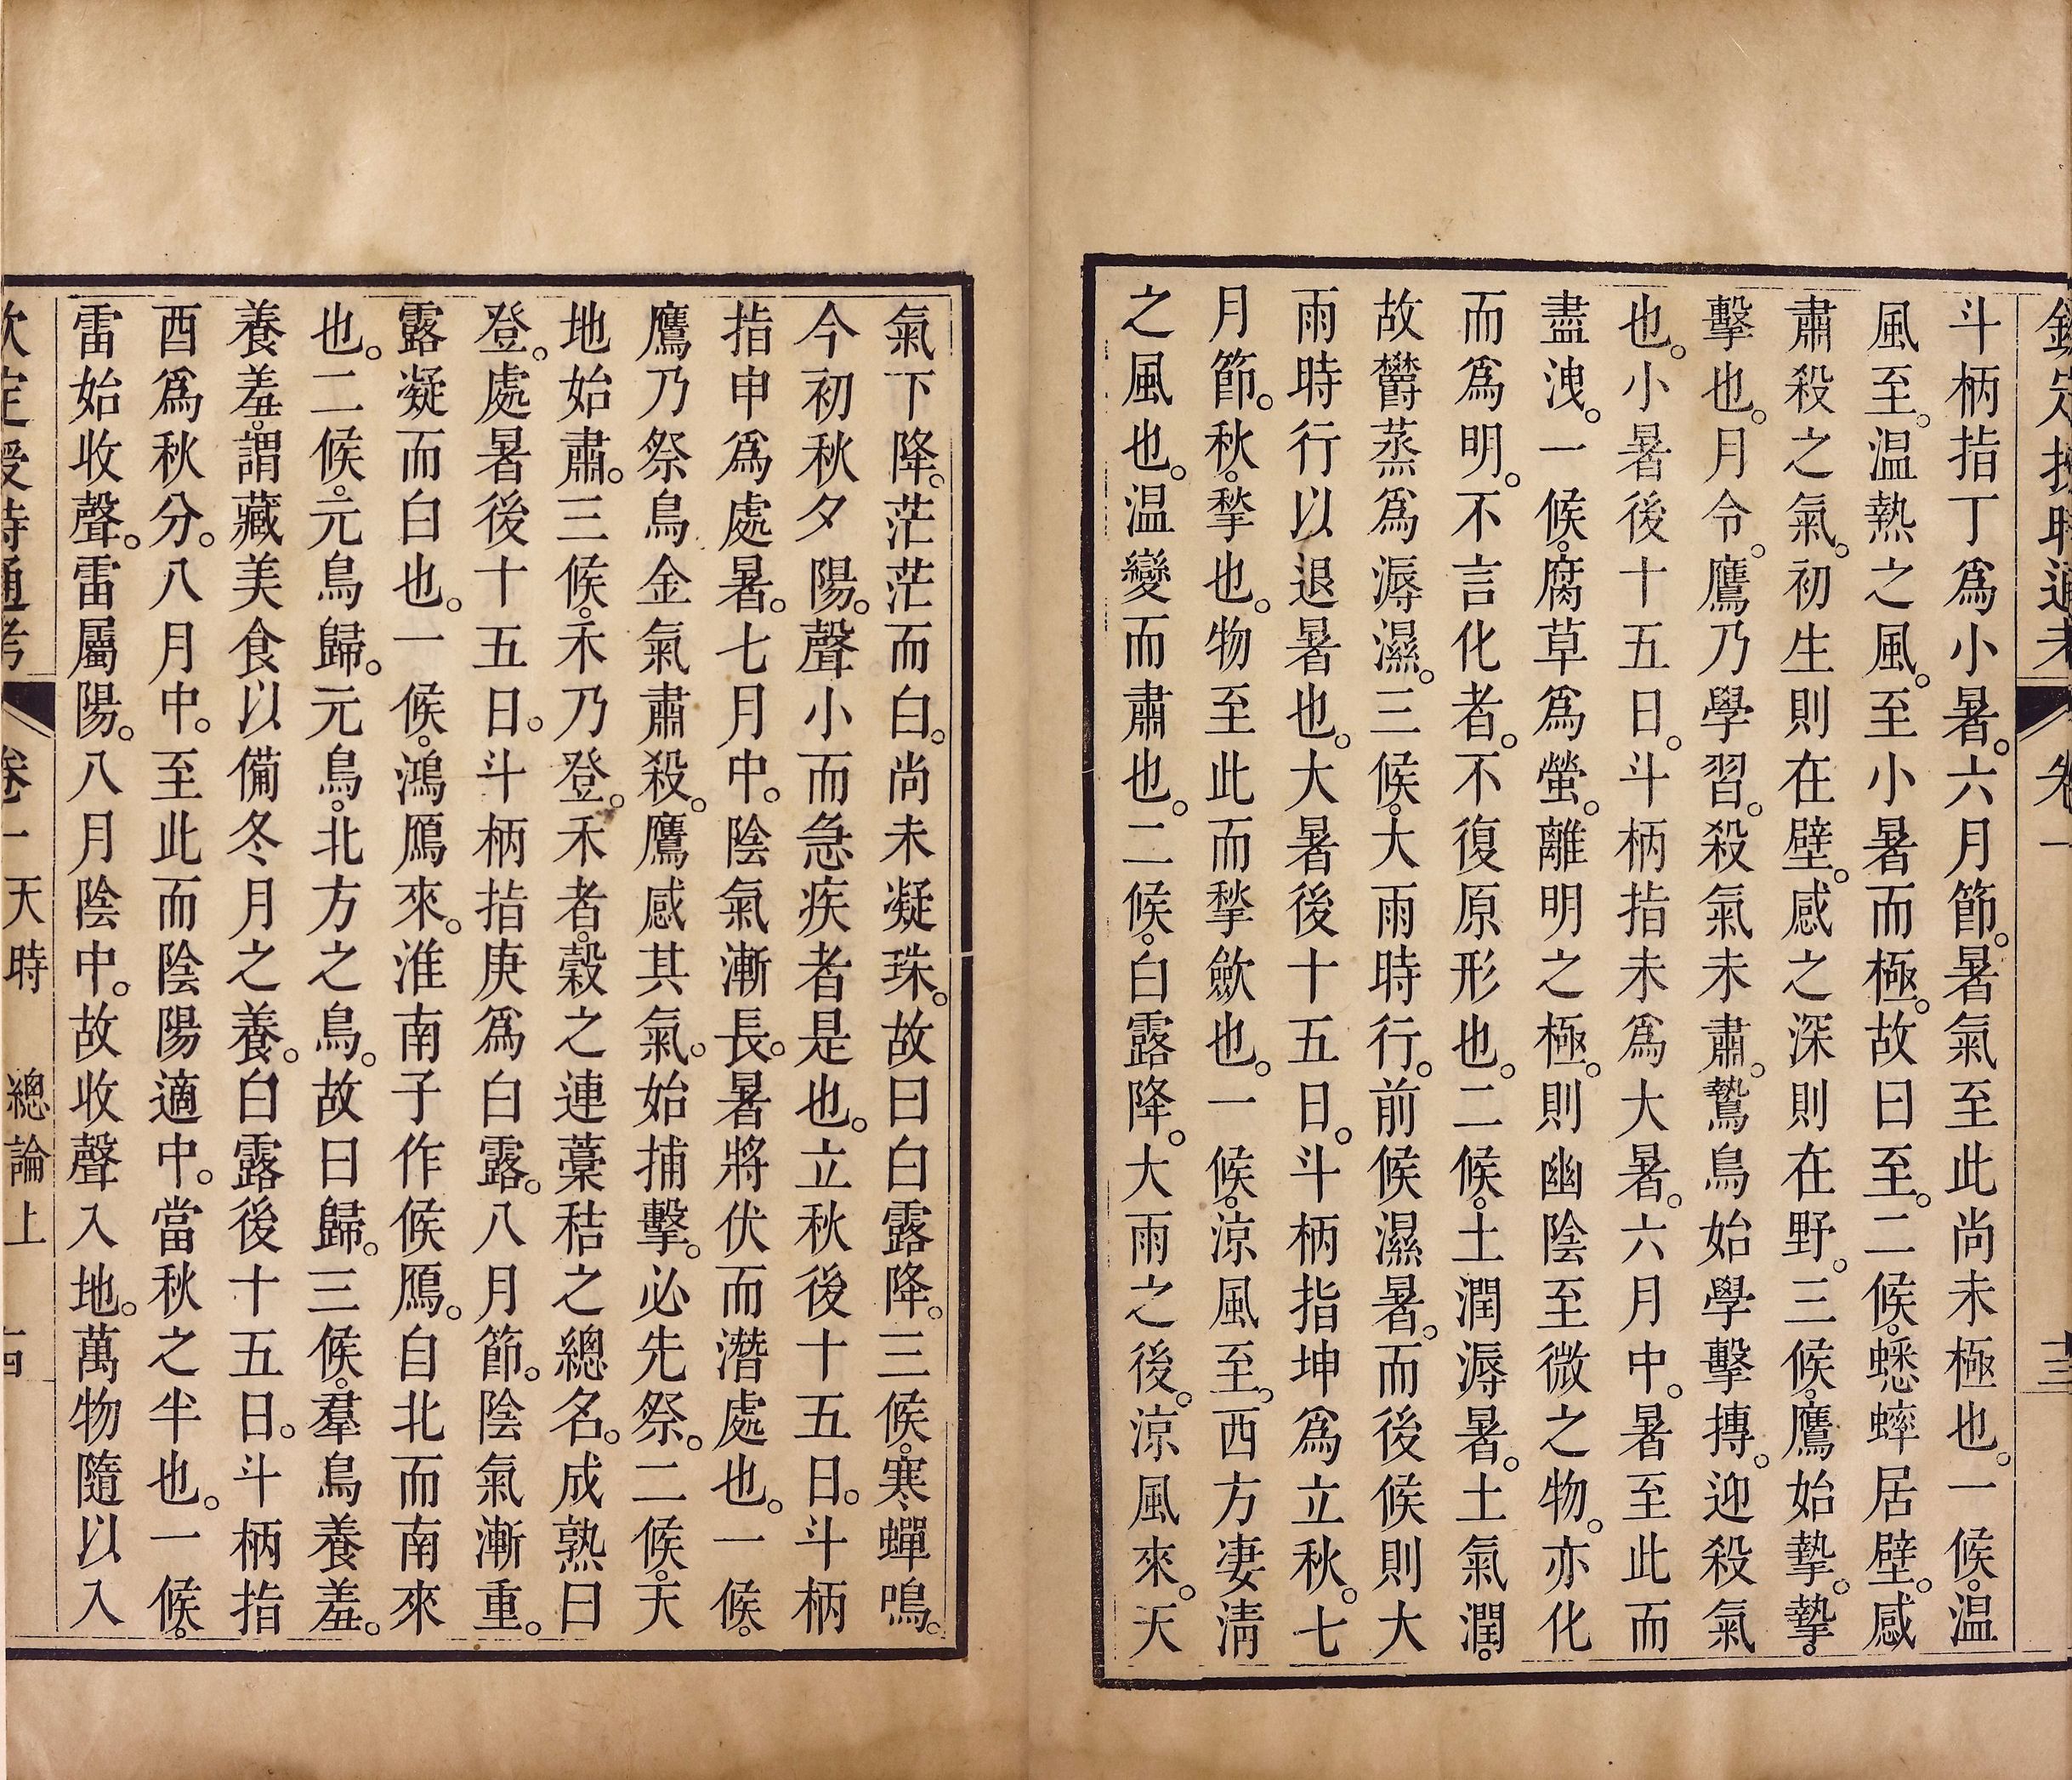 斗柄指丁爲小暑。六月節。暑氣至此尚未極也。一候。温
風至。温熱之風。至小暑而極。故曰至。二候。蟋蟀居壁。感
肅殺之氣。初生則在壁。感之深則在野。三候。鷹始摯。摯。
擊也。月令。鷹乃學習。殺氣未肅。鷙鳥始學擊搏。迎殺氣
也。小暑後十五日。斗柄指未爲大暑。六月中。暑至此而
盡洩。一候。腐草爲螢。離明之極。則幽陰至微之物。亦化
而爲明。不言化者。不復原形也。二候。土潤溽暑。土氣潤。
故欝蒸爲溽濕。三候。大雨時行。前候濕暑。而後候則大
雨時行以退暑也。大暑後十五日。斗柄指坤爲立秋。七
月節。秋。揫也。物至此而揫歛也。一候。涼風至。西方凄清
之風也。温變而肅也。二候。白露降。大雨之後。涼風來。天
氣下降。茫茫而白。尚未凝珠。故曰白露降。三候。寒蟬鳴。
今初秋夕陽。聲小而急疾者是也。立秋後十五日。斗柄
指申爲處暑。七月中。陰氣漸長。暑將伏而潛處也。一候。
鷹乃祭鳥金氣肅殺。鷹感其氣。始捕擊。必先祭。二候。天
地始肅。三候。禾乃登。禾者。穀之連藁秸之總名。成熟曰
登。處暑後十五日。斗柄指庚爲白露。八月節。陰氣漸重。
露凝而白也。一候。鴻鴈來。淮南子作候鴈。自北而南來
也。二候。元鳥歸。元鳥。北方之鳥。故曰歸。三候。羣鳥養羞。
養羞。謂藏美食以備冬月之養。白露後十五日。斗柄指
酉爲秋分。八月中。至此而陰陽適中。當秋之半也。一候。
雷始收聲。雷屬陽。八月陰中。故收聲入地。萬物隨以入
欽定授時通考 卷一 天時 總論上 十四